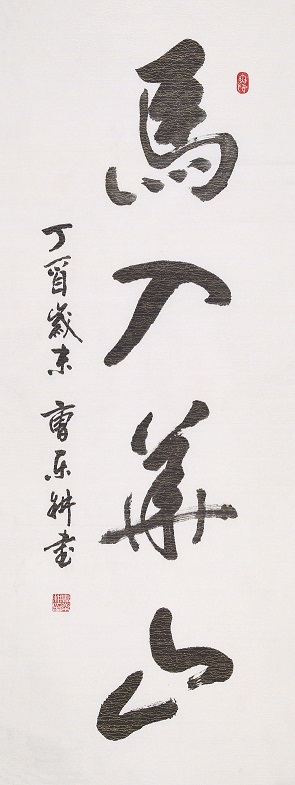 馬入華山
丁酉歲末 曹乐耕書